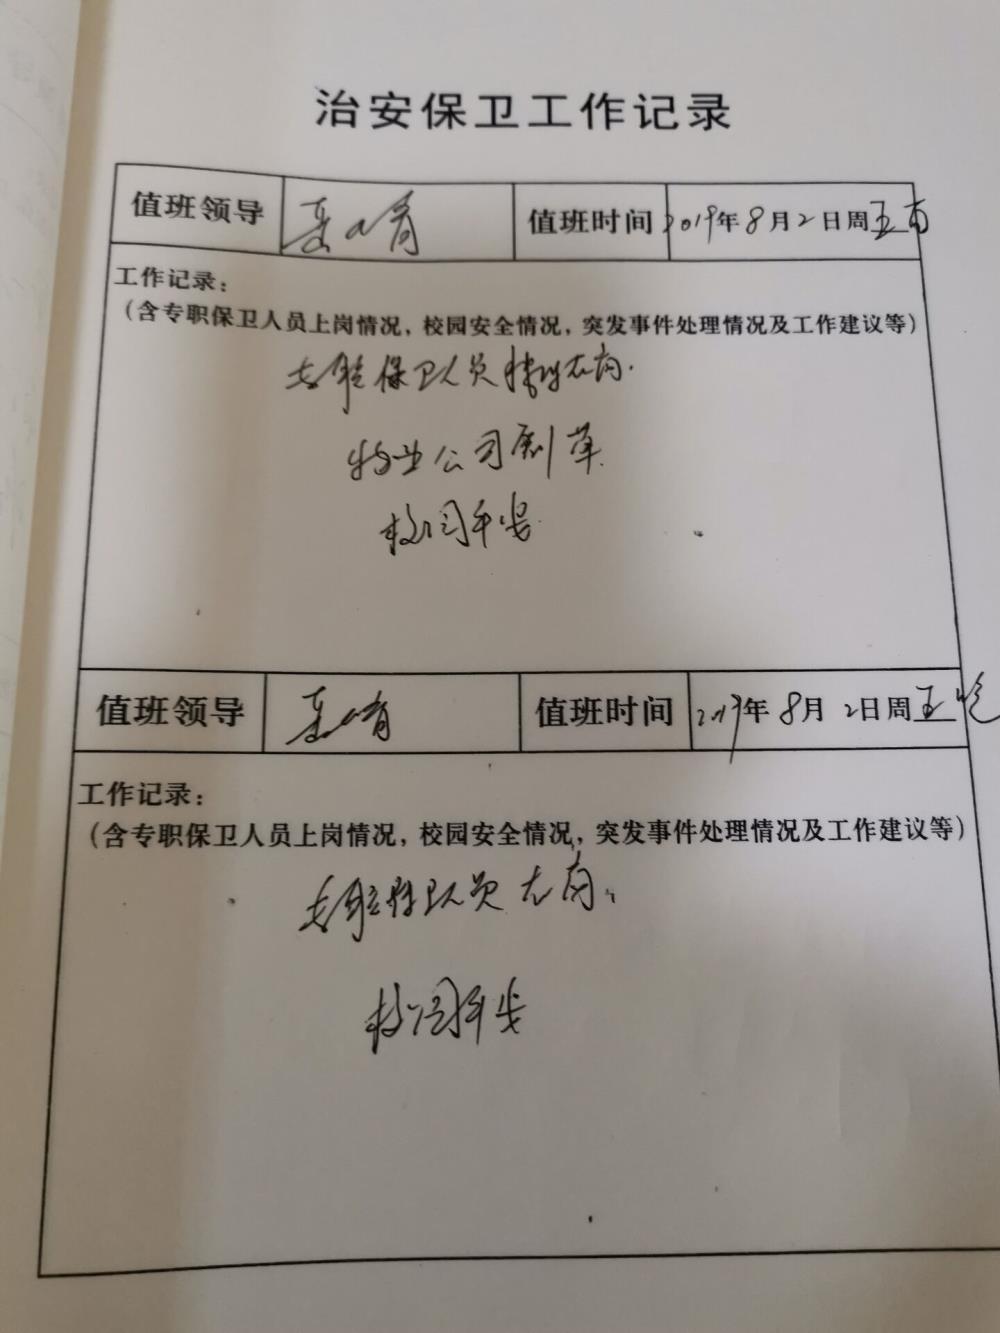 治安保卫工作记录
值班领导
值班时间 2019年8月2日周五
工作记录：
（含专职保卫人员上岗情况，校园安全情况，突发事件处理情况及工作建议等）
专职保卫人员 在岗.
物业公司割草
校园平安
值班领导
值班时间 2019年8月2日周五晚
工作记录：
（含专职保卫人员上岗情况，校园安全情况，突发事件处理情况及工作建议等）
专职保卫人员在岗,
校园平安